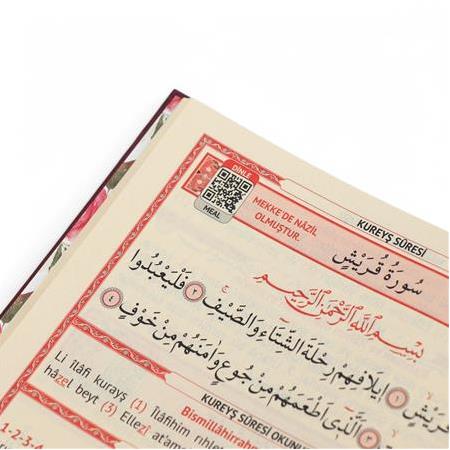 DİNLE
MEAL
MEKKE'DE NÂZİL
OLMUŞTUR.
KUREYŞ SÛRESİ
سُورَةُ قُرَيْشٍ
بِسْمِ اللّٰهِ الرَّحْمٰنِ الرَّحِيمِ
قُرَيْشٍ ﴿١﴾ اِيلَافِهِمْ رِحْلَةَ الشِّتَٓاءِ وَالصَّيْفِ ﴿٢﴾ فَلْيَعْبُدُوا
﴿٣﴾ اَلَّذٓي اَطْعَمَهُمْ مِنْ جُوعٍ وَاٰمَنَهُمْ مِنْ خَوْفٍ ﴿٤﴾
KUREYŞ SÛRESİ OKUNU
Bismillâhirrahm
Li îlâfi kurayş (1) Îlâfihim rıhlet
hâzel beyt (3) Ellezî at'ame
1-2-3-4-